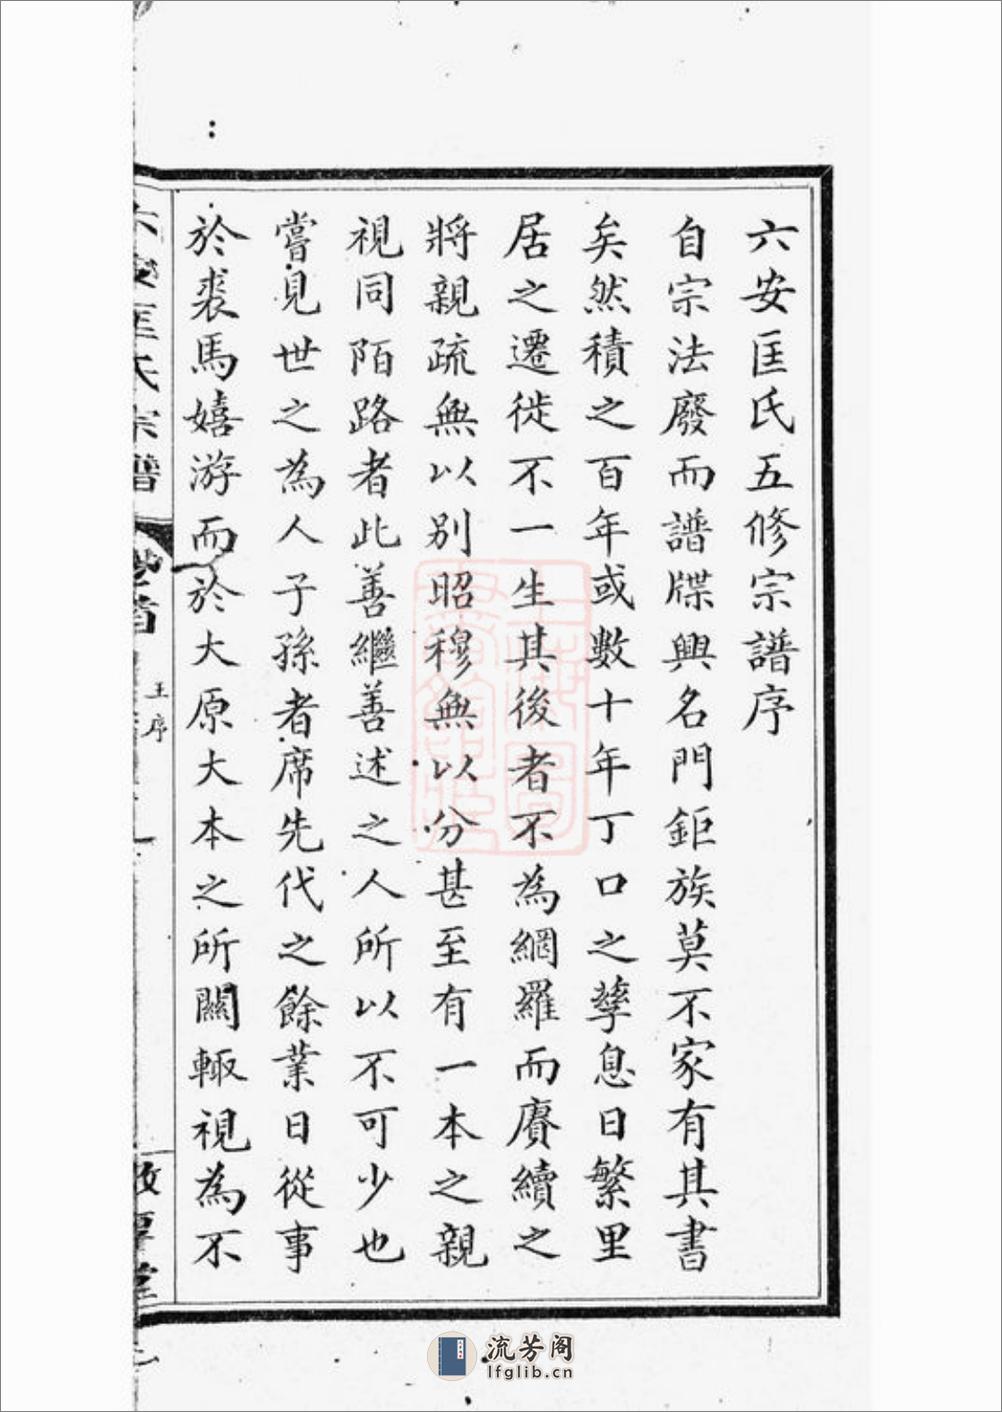 六安匡氏五修宗譜序
自宗法廢而譜牒興名門鉅族莫不家有其書
矣然積之百年或數十年丁口之孳息日繁里
居之遷徙不一生其後者不為網羅而賡續之
將親疏無以別昭穆無以分甚至有一本之親
視同陌路者此善繼善述之人所以不可少也
嘗見世之為人子孫者席先代之餘業日從事
於裘馬嬉游而於大原大本之所關輙視為不
六安匡氏宗譜
卷首
王序
敦厚堂
流芳阁
lfglib.cn